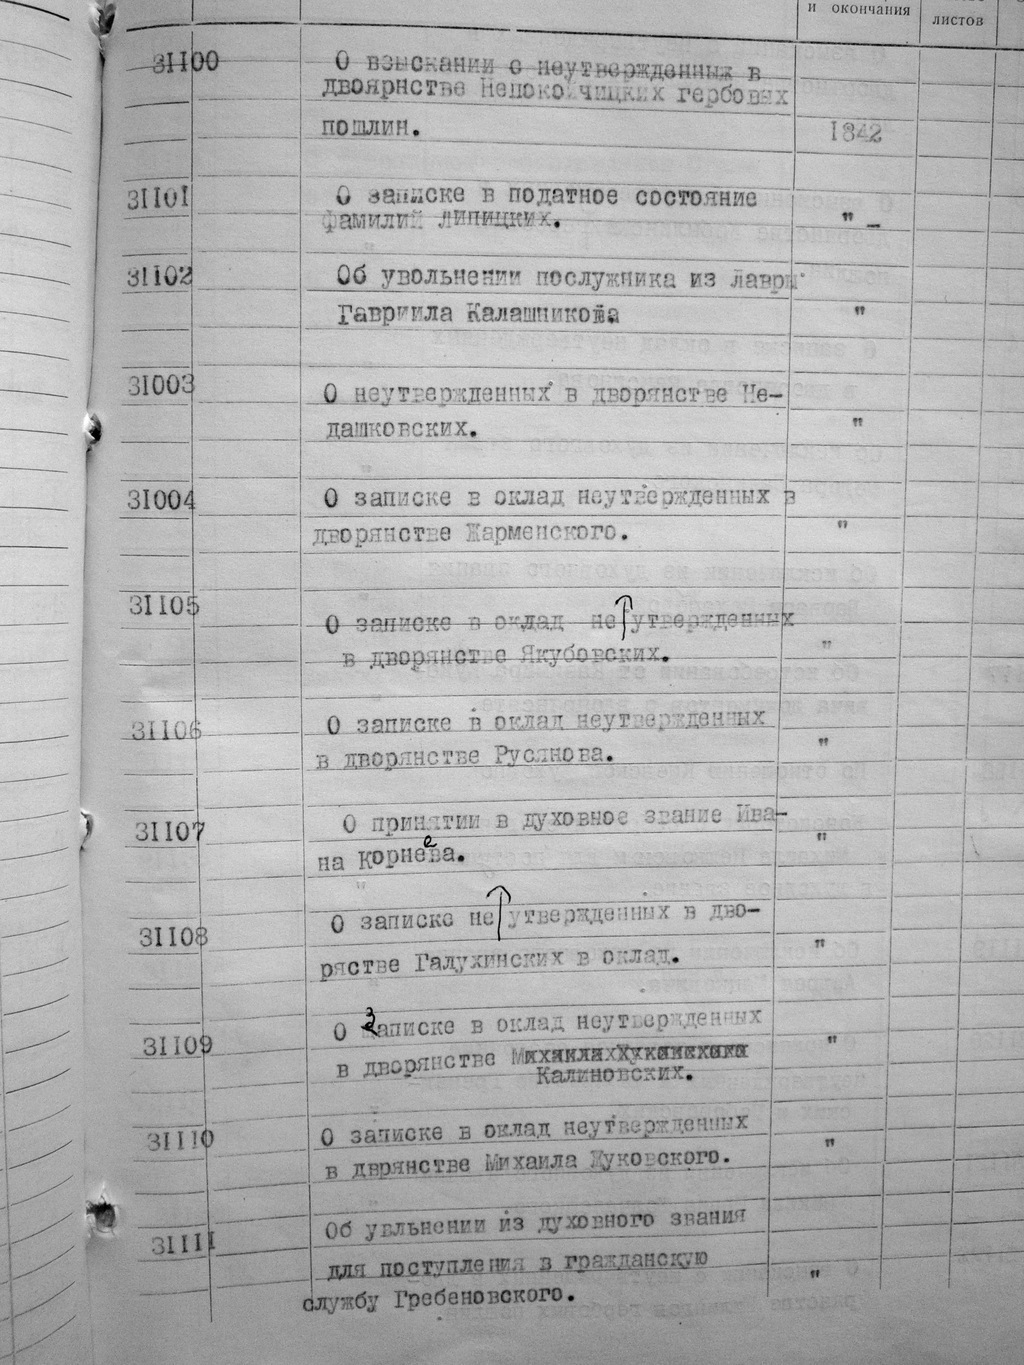 и окончания
листов
31100 О взыскании с неутвержденных в
двоярнстве Непокойчицких гербовых
пошлин. 1842
31101 О записке в податное состояние
фамилий Липицких. " –
31102 Об увольнении послужника из лавры
Гавриила Калашникова "
31003 О неутвержденных в дворянстве Не-
дашковских. "
31004 О записке в оклад неутвержденных в
дворянстве Жарменского. "
31105 О записке в оклад не утвержденных
в дворянстве Якубовских. "
31106 О записке в оклад неутвержденных
в дворянстве Русянова. "
31107 О принятии в духовное звание Ива-
на Корнева. "
31108 О записке не утвержденных в дво-
рястве Галухинских в оклад. "
31109 О записке в оклад неутвержденных
в дворянстве "
Калиновских.
31110 О записке в оклад неутвержденных
в дврянстве Михаила Жуковского. "
31111 Об увльнении из духовного звания
для поступления в гражданскую "
службу Гребеновского.